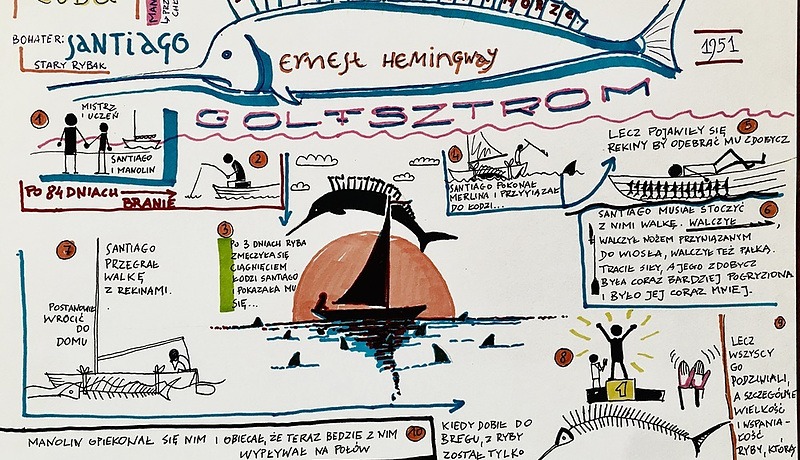 CUBA
BOHATER: SANTIAGO
STARY RYBAK
MORZE
ERNEST HEMINGWAY
1951
GOLFSZTROM
1
MISTRZ
I UCZEŃ
SANTIAGO
I MANOLIN
PO 84 DNIACH
BRANIE
2
3
PO 3 DNIACH RYBA
ZMĘCZYŁA SIĘ
CIĄGNIĘCIEM
ŁODZI SANTIAGO
I POKAZAŁA MU
SIĘ...
4
SANTIAGO POKONAŁ
MERLINA I PRZYWIĄZAŁ
DO ŁODZI...
5
LECZ POJAWIŁY SIĘ
REKINY BY ODEBRAĆ MU ZDOBYCZ
6
SANTIAGO MUSIAŁ STOCZYĆ
Z NIMI WALKĘ. WALCZYŁ
WALCZYŁ NOŻEM PRZYWIĄZANYM
DO WIOSŁA, WALCZYŁ TEŻ PAŁKĄ.
TRACIŁ SIŁY, A JEGO ZDOBYCZ
BYŁA CORAZ BARDZIEJ POGRYZIONA
I BYŁO JEJ CORAZ MNIEJ.
7
SANTIAGO
PRZEGRAŁ
WALKĘ
Z REKINAMI.
POSTANOWIŁ
WRÓCIĆ
DO
DOMU
8
1
9
LECZ
WSZYSCY
GO
PODZIWIALI,
A SZCZEGÓLNIE
WIELKOŚĆ
I WSPANIA-
ŁOŚĆ
RYBY, KTÓRĄ
KIEDY DOBIŁ DO
BREGU, Z RYBY
ZOSTAŁ TYLKO
10
MANOLIN OPIEKOWAŁ SIĘ NIM I OBIECAŁ, ŻE TERAZ BĘDZIE Z NIM
WYPŁYWAŁ NA POŁÓW